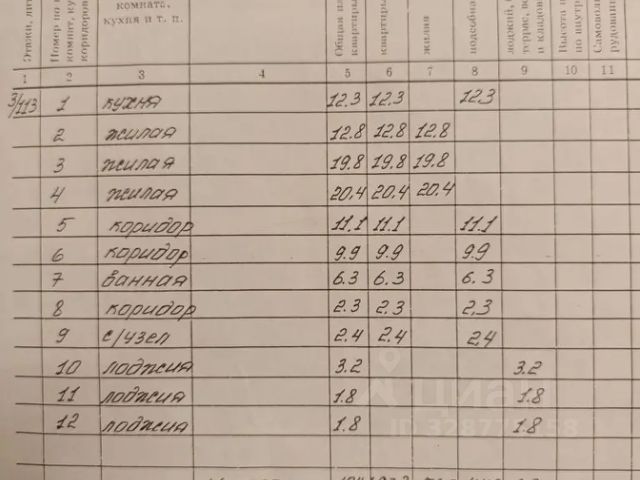 комната,
кухня и т. п.
Этажи,
Номер по
комнат,
коридоров
Общая
квартиры
квартиры
жилая
подсобная
лоджий,
террас,
и кладовых
Высота
по внутр
Самоволь
1 2 3 4 5 6 7 8 9 10 11
3/113 1 кухня 12.3 12.3 12.3
2 жилая 12.8 12.8 12.8
3 жилая 19.8 19.8 19.8
4 жилая 20.4 20.4 20.4
5 коридор 11.1 11.1 11.1
6 коридор 9.9 9.9 9.9
7 ванная 6.3 6.3 6.3
8 коридор 2.3 2.3 2,3
9 с/узел 2.4 2.4 2,4
10 лоджия 3.2 3.2
11 лоджия 1.8 1.8
12 лоджия 1.8 1.8
циан